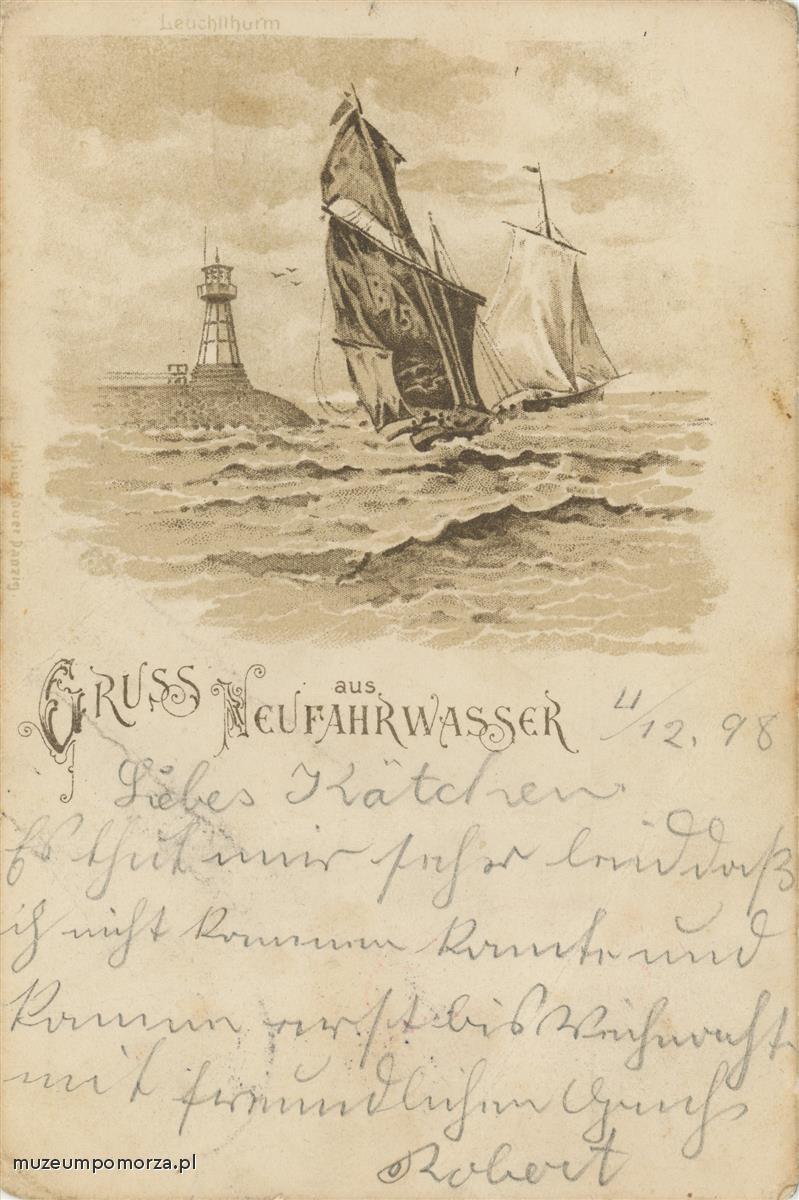 Leuchtthurm
Julius Sauer Danzig
GRUSS aus NEUFAHRWASSER
4/12. 98
Liebes Kätchen
Es thut mir sehr leid daß
ich nicht kommen konnte und
komme erst bis Weihnacht
mit freundlichen Gruß
Robert
muzeumpomorza.pl